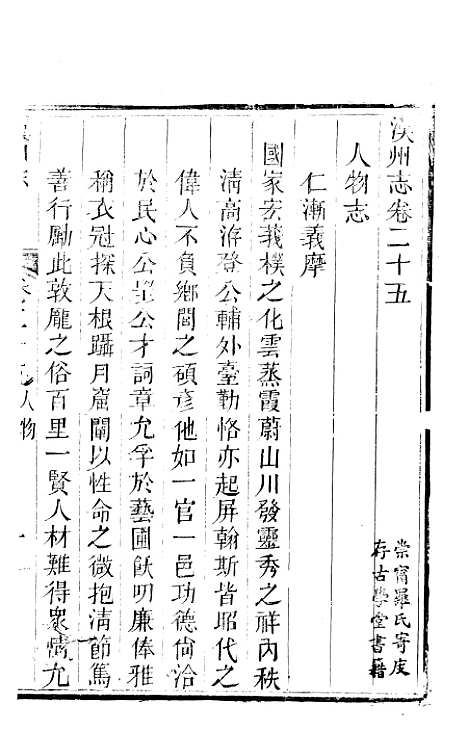 漢州志卷二十五
人物志
仁漸義摩
國家宏莪樸之化雲蒸霞蔚山川發靈秀之祥內秩
清高洊登公輔外臺勤恪亦起屏翰斯皆昭代之
偉人不負鄉閭之碩彥他如一官一邑功德尙洽
於民心公望公才詞章允孚於藝圃飫叨廉俸雅
稱衣冠探天根躡月窟闡以性命之微抱淸節篤
善行勵此敦龐之俗百里一賢人材難得衆情允
人物
崇甯羅氏寄庋
存古學堂書籍